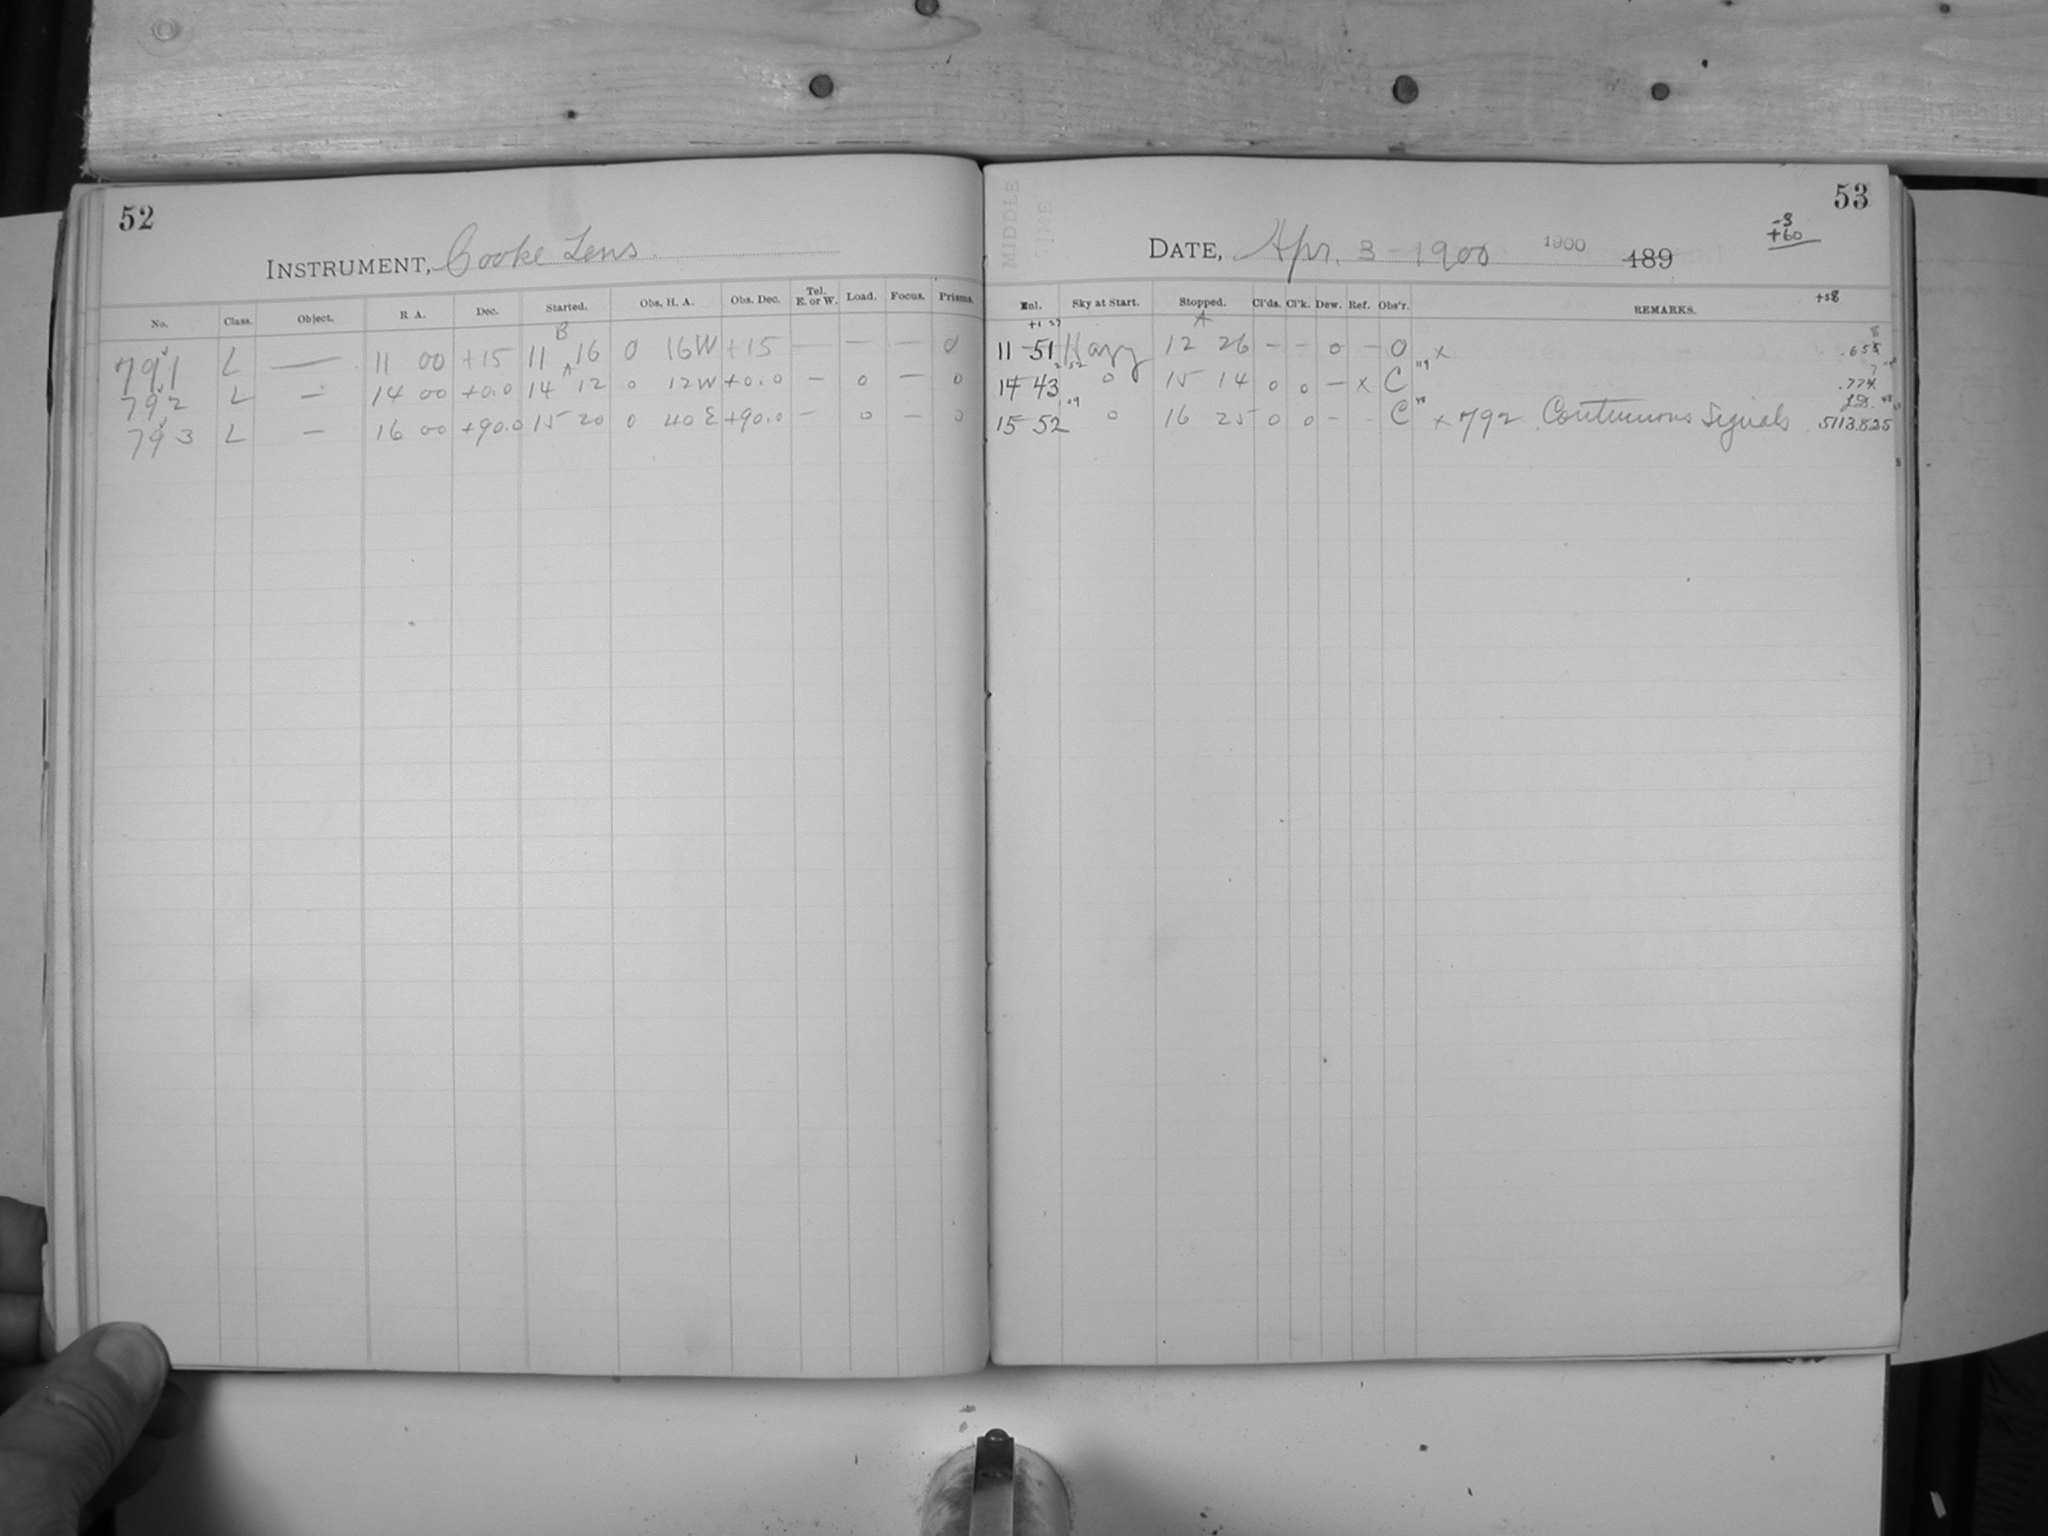 52
INSTRUMENT, Cooke Lens.
No. Class. Object. R A. Dec. Started. Obs. H. A. Obs. Dec. Tel. E. or W. Load. Focus. Prisms.
B
791 L — 11 00 +15 11 16 0 16W +15 — — — 0
A
792 L — 14 00 +0.0 14 12 0 12W +0.0 — 0 — 0
793 L — 16 00 +90.0 15 20 0 40E +90.0 — 0 — 0
53
MIDDLE TIME
-3
+60
DATE, Apr. 3-1900 1900 189
+58
Enl. Sky at Start. Stopped. Cl'ds. Cl'k. Dew. Ref. Obs'r. REMARKS.
+1 27 A
11 51 Hazy 12 26 — — 0 — O x .655
14 43 0 15 14 0 0 — x C .774
J.D.
15 52 0 16 25 0 0 — - C x 792 Continuous Signals 5113.825